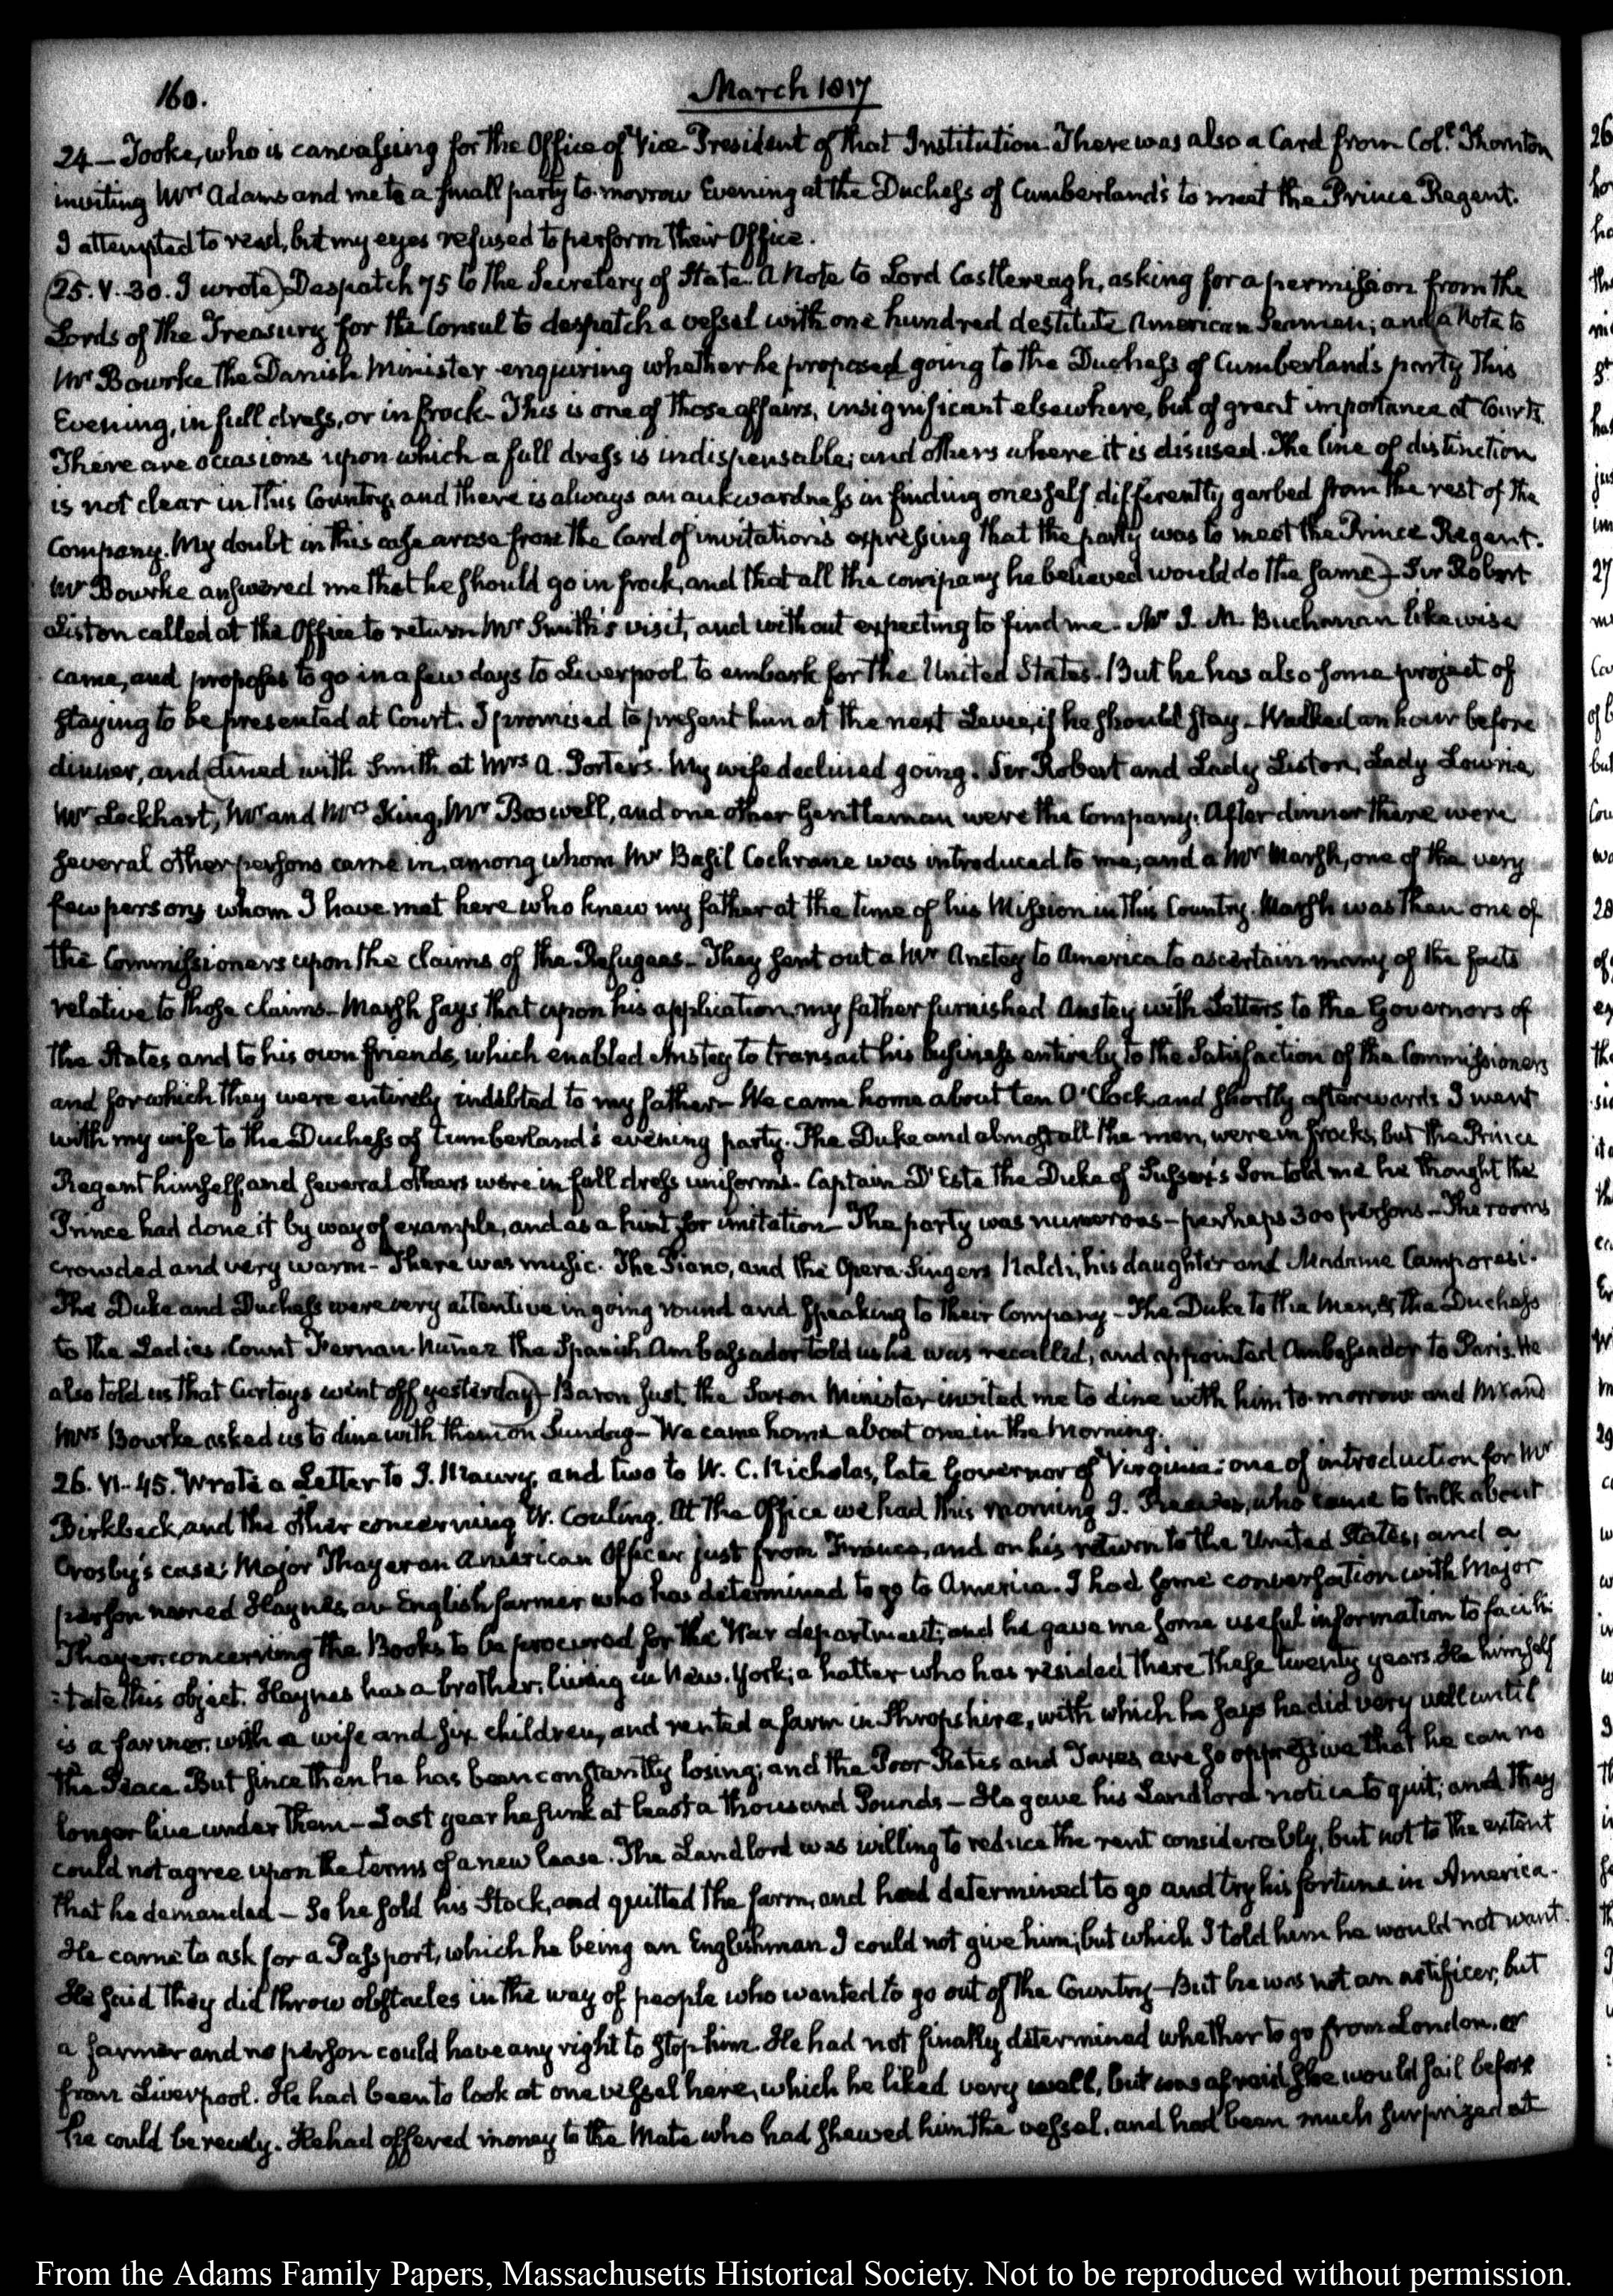 160.
March 1817
24 — Tooke, who is canvassing for the Office of Vice-President of that Institution. There was also a Card from Col.l Thornton
inviting Mrs Adams and me to a small party to-morrow Evening at the Duchess of Cumberland's to meet the Prince Regent.
I attempted to read, but my eyes refused to perform their Office.
25. V. 30. I wrote) Despatch 75 to the Secretary of State. a Note to Lord Castlereagh, asking for a permission from the
Lords of the Treasury for the Consul to despatch a vessel with one hundred destitute American Seamen; and (a Note to
Mr Bourke the Danish Minister enquiring whether he proposed going to the Duchess of Cumberland's party this
Evening, in full dress, or in frock — This is one of those affairs, insignificant elsewhere, but of great importance at Courts.
There are occasions upon which a full dress is indispensable; and others where it is disused. The line of distinction
is not clear in this Country, and there is always an aukwardness in finding oneself differently garbed from the rest of the
Company. My doubt in this case arose from the Card of invitation's expressing that the party was to meet the Prince Regent.
Mr Bourke answered me that he should go in frock, and that all the company he believed would do the same) — Sir Robert
Liston called at the Office to return Mr Smith's visit, and without expecting to find me — Mr J. M. Buchanan likewise
came, and proposes to go in a few days to Liverpool to embark for the United States. But he has also some project of
staying to be presented at Court. I promised to present him at the next Levee, if he should stay — Walked an hour before
dinner, and (dined with Smith at Mrs A. Porter's. My wife declined going. Sir Robert and Lady Liston, Lady Lowrie,
Mr Lockhart, Mr and Mrs King, Mr Boswell, and one other Gentleman were the Company. After dinner there were
several other persons came in, among whom Mr Basil Cochrane was introduced to me; and a Mr Marsh, one of the very
few persons whom I have met here who knew my father at the time of his Mission in this Country. Marsh was then one of
the Commissioners upon the claims of the Refugees — They sent out a Mr Anstey to America to ascertain many of the facts
relative to those claims — Marsh says that upon his application, my father furnished Anstey with Letters to the Governors of
the States and to his own friends, which enabled Anstey to transact his business entirely to the Satisfaction of the Commissioners
and for which they were entirely indebted to my father — We came home about ten O'Clock, and shortly afterwards I went
with my wife to the Duchess of Cumberland's evening party. The Duke and almost all the men, were in frocks; but the Prince
Regent himself, and several others were in full dress uniforms. Captain D'Este the Duke of Sussex's Son told me he thought the
Prince had done it by way of example, and as a hint for imitation — The party was numerous — perhaps 300 persons — The rooms
crowded and very warm — There was music. The Piano, and the Opera Singers Naldi, his daughter and Madame Camporesi.
The Duke and Duchess were very attentive in going round and speaking to their Company — The Duke to the Men, & the Duchess
to the Ladies. Count Fernan-Nuñez the Spanish Ambassador told us he was recalled, and appointed Ambassador to Paris. He
also told us that Curtoys went off yesterday) — Baron Just, the Saxon Minister invited me to dine with him to-morrow and Mr and
Mrs Bourke asked us to dine with them on Sunday — We came home about one in the Morning.
26. VI. 45. Wrote a Letter to J. Maury, and two to W. C. Nicholas, late Governor of Virginia: one of introduction for Mr
Birkbeck, and the other concerning W. Couling. At the Office we had this morning J. Reeves, who came to talk about
Crosby's case: Major Thayer an American Officer just from France, and on his return to the United States; and a
person named Haynes, an English farmer who has determined to go to America. I had some conversation with Major
Thayer concerning the Books to be procured for the War department; and he gave me some useful information to facili-
:tate this object. Haynes has a brother living in New-York; a hatter who has resided there these twenty years. He himself
is a farmer, with a wife and six children, and rented a farm in Shropshire, with which he says he did very well until
the Peace. But since then he has been constantly losing; and the Poor Rates and Taxes are so oppressive that he can no
longer live under them — Last year he sunk at least a thousand Pounds — He gave his Landlord notice to quit; and they
could not agree upon the terms of a new lease. The Landlord was willing to reduce the rent considerably, but not to the extent
that he demanded — So he sold his Stock, and quitted the farm, and had determined to go and try his fortune in America.
He came to ask for a Passport, which he being an Englishman I could not give him; but which I told him he would not want.
He said they did throw obstacles in the way of people who wanted to go out of the Country — But he was not an artificer, but
a farmer and no person could have any right to stop him. He had not finally determined whether to go from London, or
from Liverpool. He had been to look at one vessel here, which he liked very well, but was afraid she would sail before
he could be ready. He had offered money to the Mate who had shewed him the vessel, and had been much surprized at
From the Adams Family Papers, Massachusetts Historical Society. Not to be reproduced without permission.